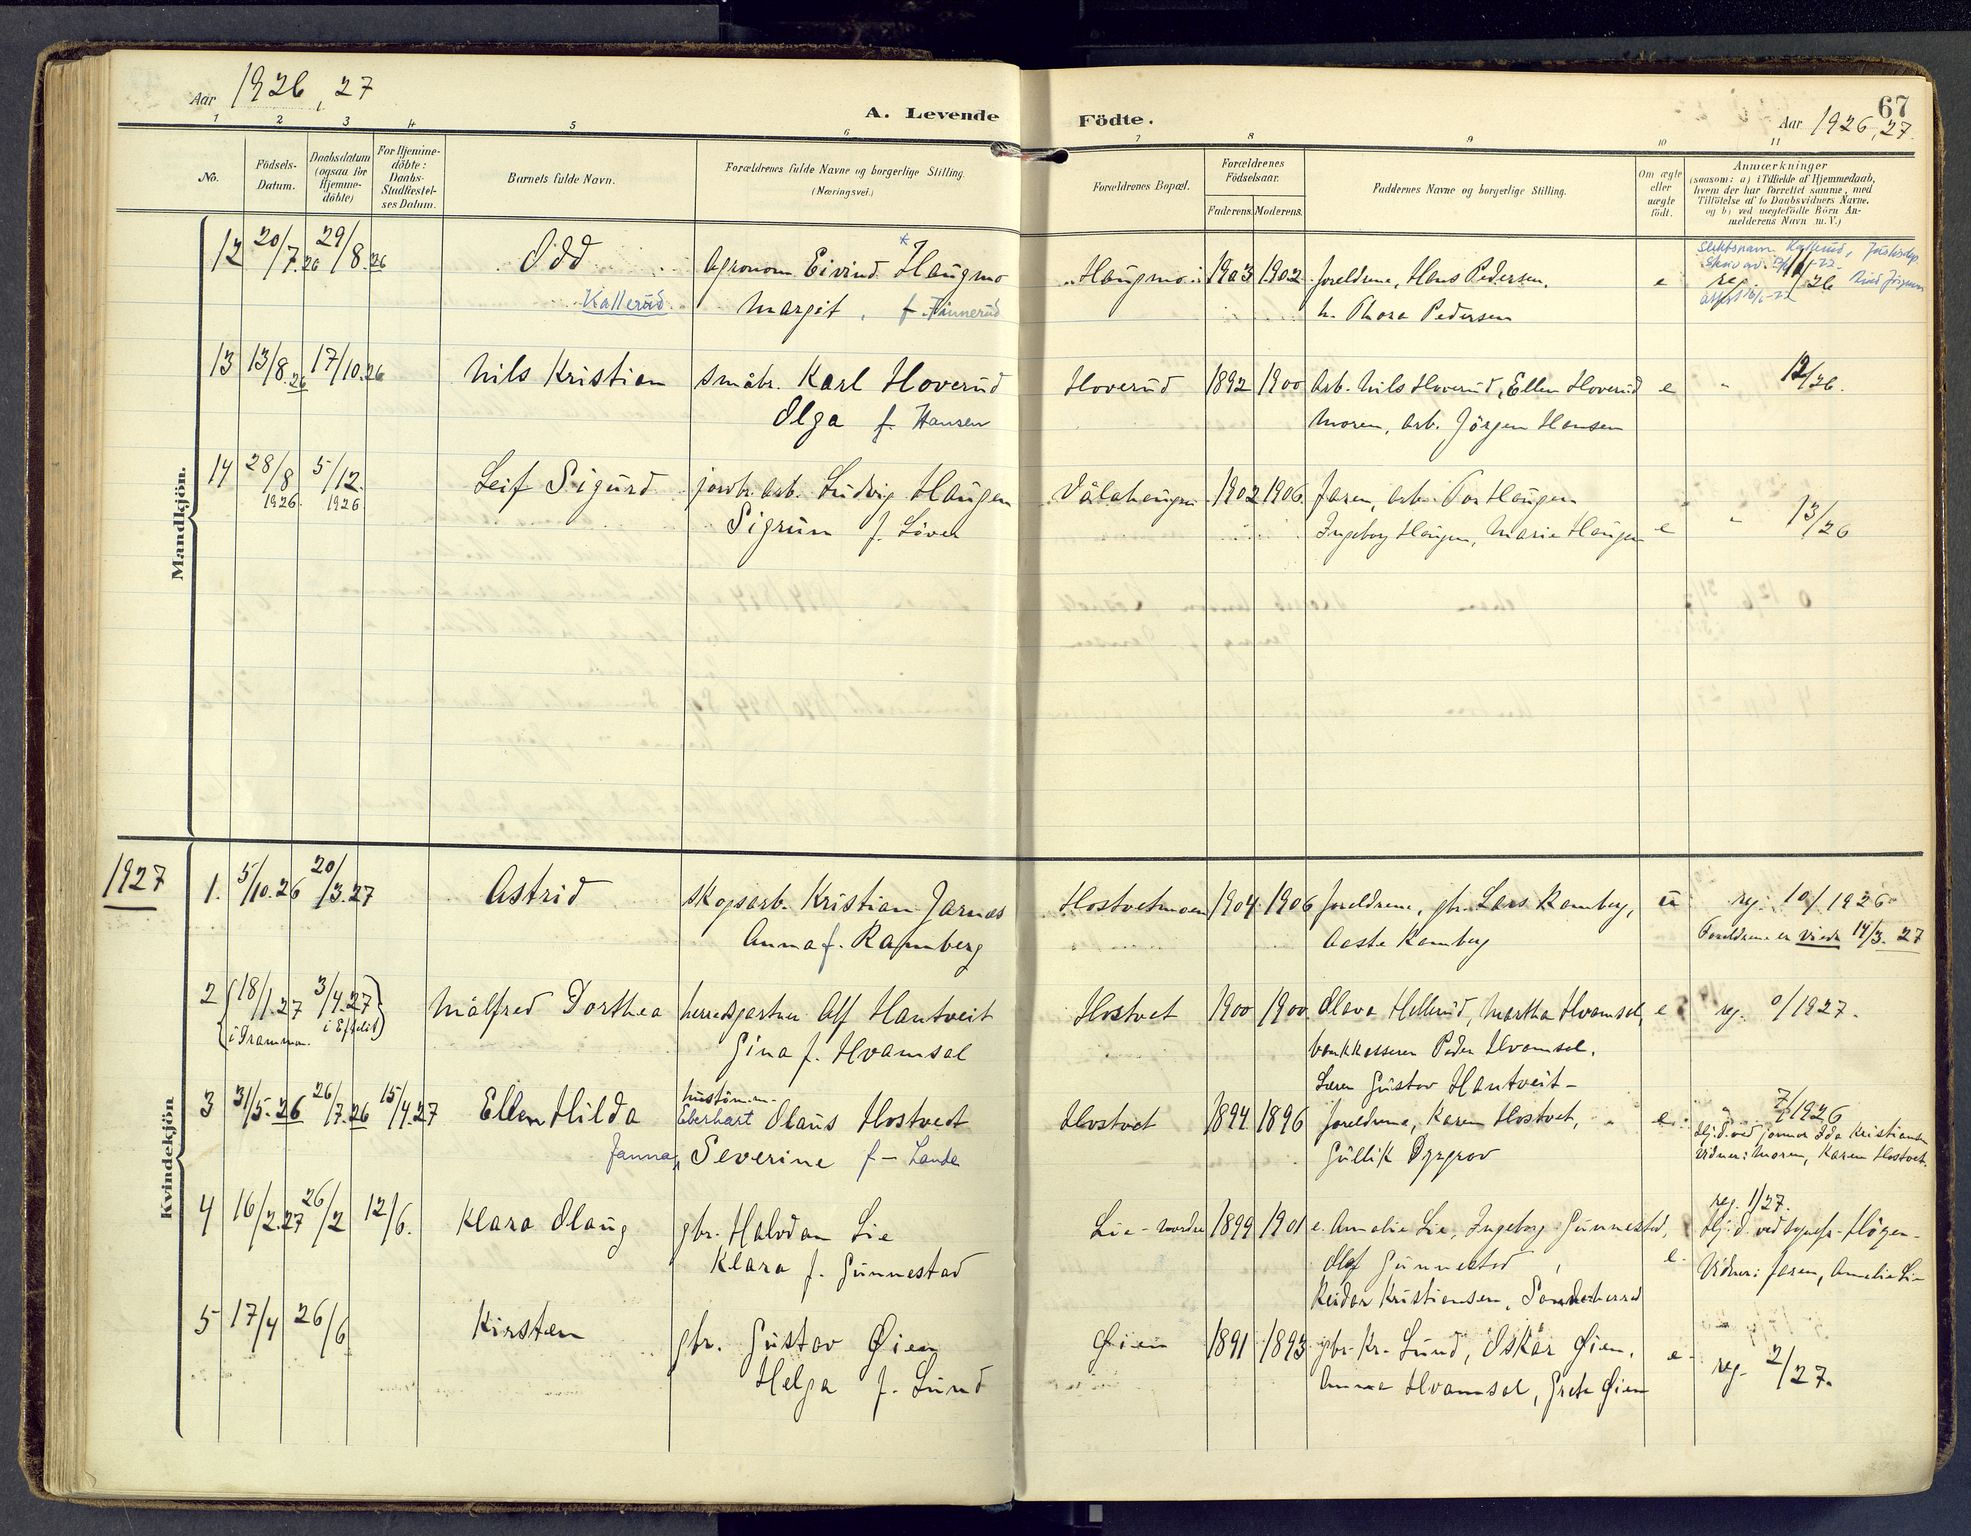 Aar 1926, 27
A. Levende Födte.
67
Aar 1926, 27.
1 2 3 4 5 6 7 8 9 10 11
No.
Födsels-Datum.
Daabsdatum (ogsaa for Hjemmedöbte)
For Hjemmedöbte: Daabs-Stadfæstelses Datum.
Barnets fulde Navn.
Forældrenes fulde Navne og borgerlige Stilling. (Næringsvei.)
Forældrenes Bopæl.
Forældrenes Födselsaar.
Faderens. Moderens.
Faddernes Navne og borgerlige Stilling.
Om ægte eller uægte födt.
Anmærkninger
(saasom: a) i Tilfælde af Hjemmedaab, hvem der har forrettet samme, med Tilföielse af to Daabsvidners Navne. og b) ved uægtefödte Börn Anmelderens Navn m. V.)
Mandkjön.
12 20/7.26 29/8.26 Odd Agronom Eivind Haugmo Haugmo 1903 1902 foreldrene, Hans Pedersen, e reg. 11/26
Kallerud Margit, f. Finnerud h. Thora Pedersen
13 13/8.26 17/10.26 Nils Kristian småbr. Karl Hoverud Hoverud 1892 1900 Arb. Nils Hoverud, Ellen Hoverud e " 12/26.
Olga f. Hansen moren, arb. Jörgen Hansen
14 28/8 1926. 5/12. 1926. Leif Sigurd jordbr.arb. Ludvig Haugen Vålahaugen 1902 1906 Faren, arb. Tor Haugen
Sigrun f. Löver Ingeborg Haugen, Marie Haugen e " 13/26
1927
Kvindekjön
1. 5/10.26 20/3.27 Astrid skogsarb. Kristian Jarnæs Hostvetmoen 1904 1906 foreldrene, gbr. Lars Ramberg, u reg. 10/1926
Anna f. Ramberg Aaste Ramberg Foreldrene er viede 14/3. 27
2 18/1.27 3/4.27 Målfred Dorthea herredsgartner Alf Hantveit Hostvet 1900 1900 Olava Hellerud, Martha Hvamsal, e reg. 0/1927.
(i Drammen. i Efteløt) Gina f. Hvamsal bankkasserer Peder Hvamsal.
Lærer Gustav Hantveit
3 31/5.26 26/7.26 15/4.27 Ellen Hilda Eberhart Olaus Hostvedt Hostvet 1894 1896 foreldrene, Karen Hostvet, e " 7/1926
Janna Severine f. Lande Gullik Dyrgrov Hj.d. ved jormor Ida Kristiansen
Vidner: Moren, Karen Hostvet.
4 16/2.27 26/2 12/6. Klara Olaug gbr. Halvdan Lie Lie - nordre 1899 1901 e. Amalie Lie, Ingeborg Gunnestad, e reg. 1/27.
Klara f. Gunnestad Olaf Gunnestad,
Reidar Kristiansen, Sandeherred Vidner: faren, Amalie Lie
5 17/4 26/6 Kirsten gbr. Gustav Øien Øien 1891 1893 gbr. Kr. Lund, Oskar Øien, e reg. 2/27.
Helga f. Lund Anna Hvamsal, Grete Øien